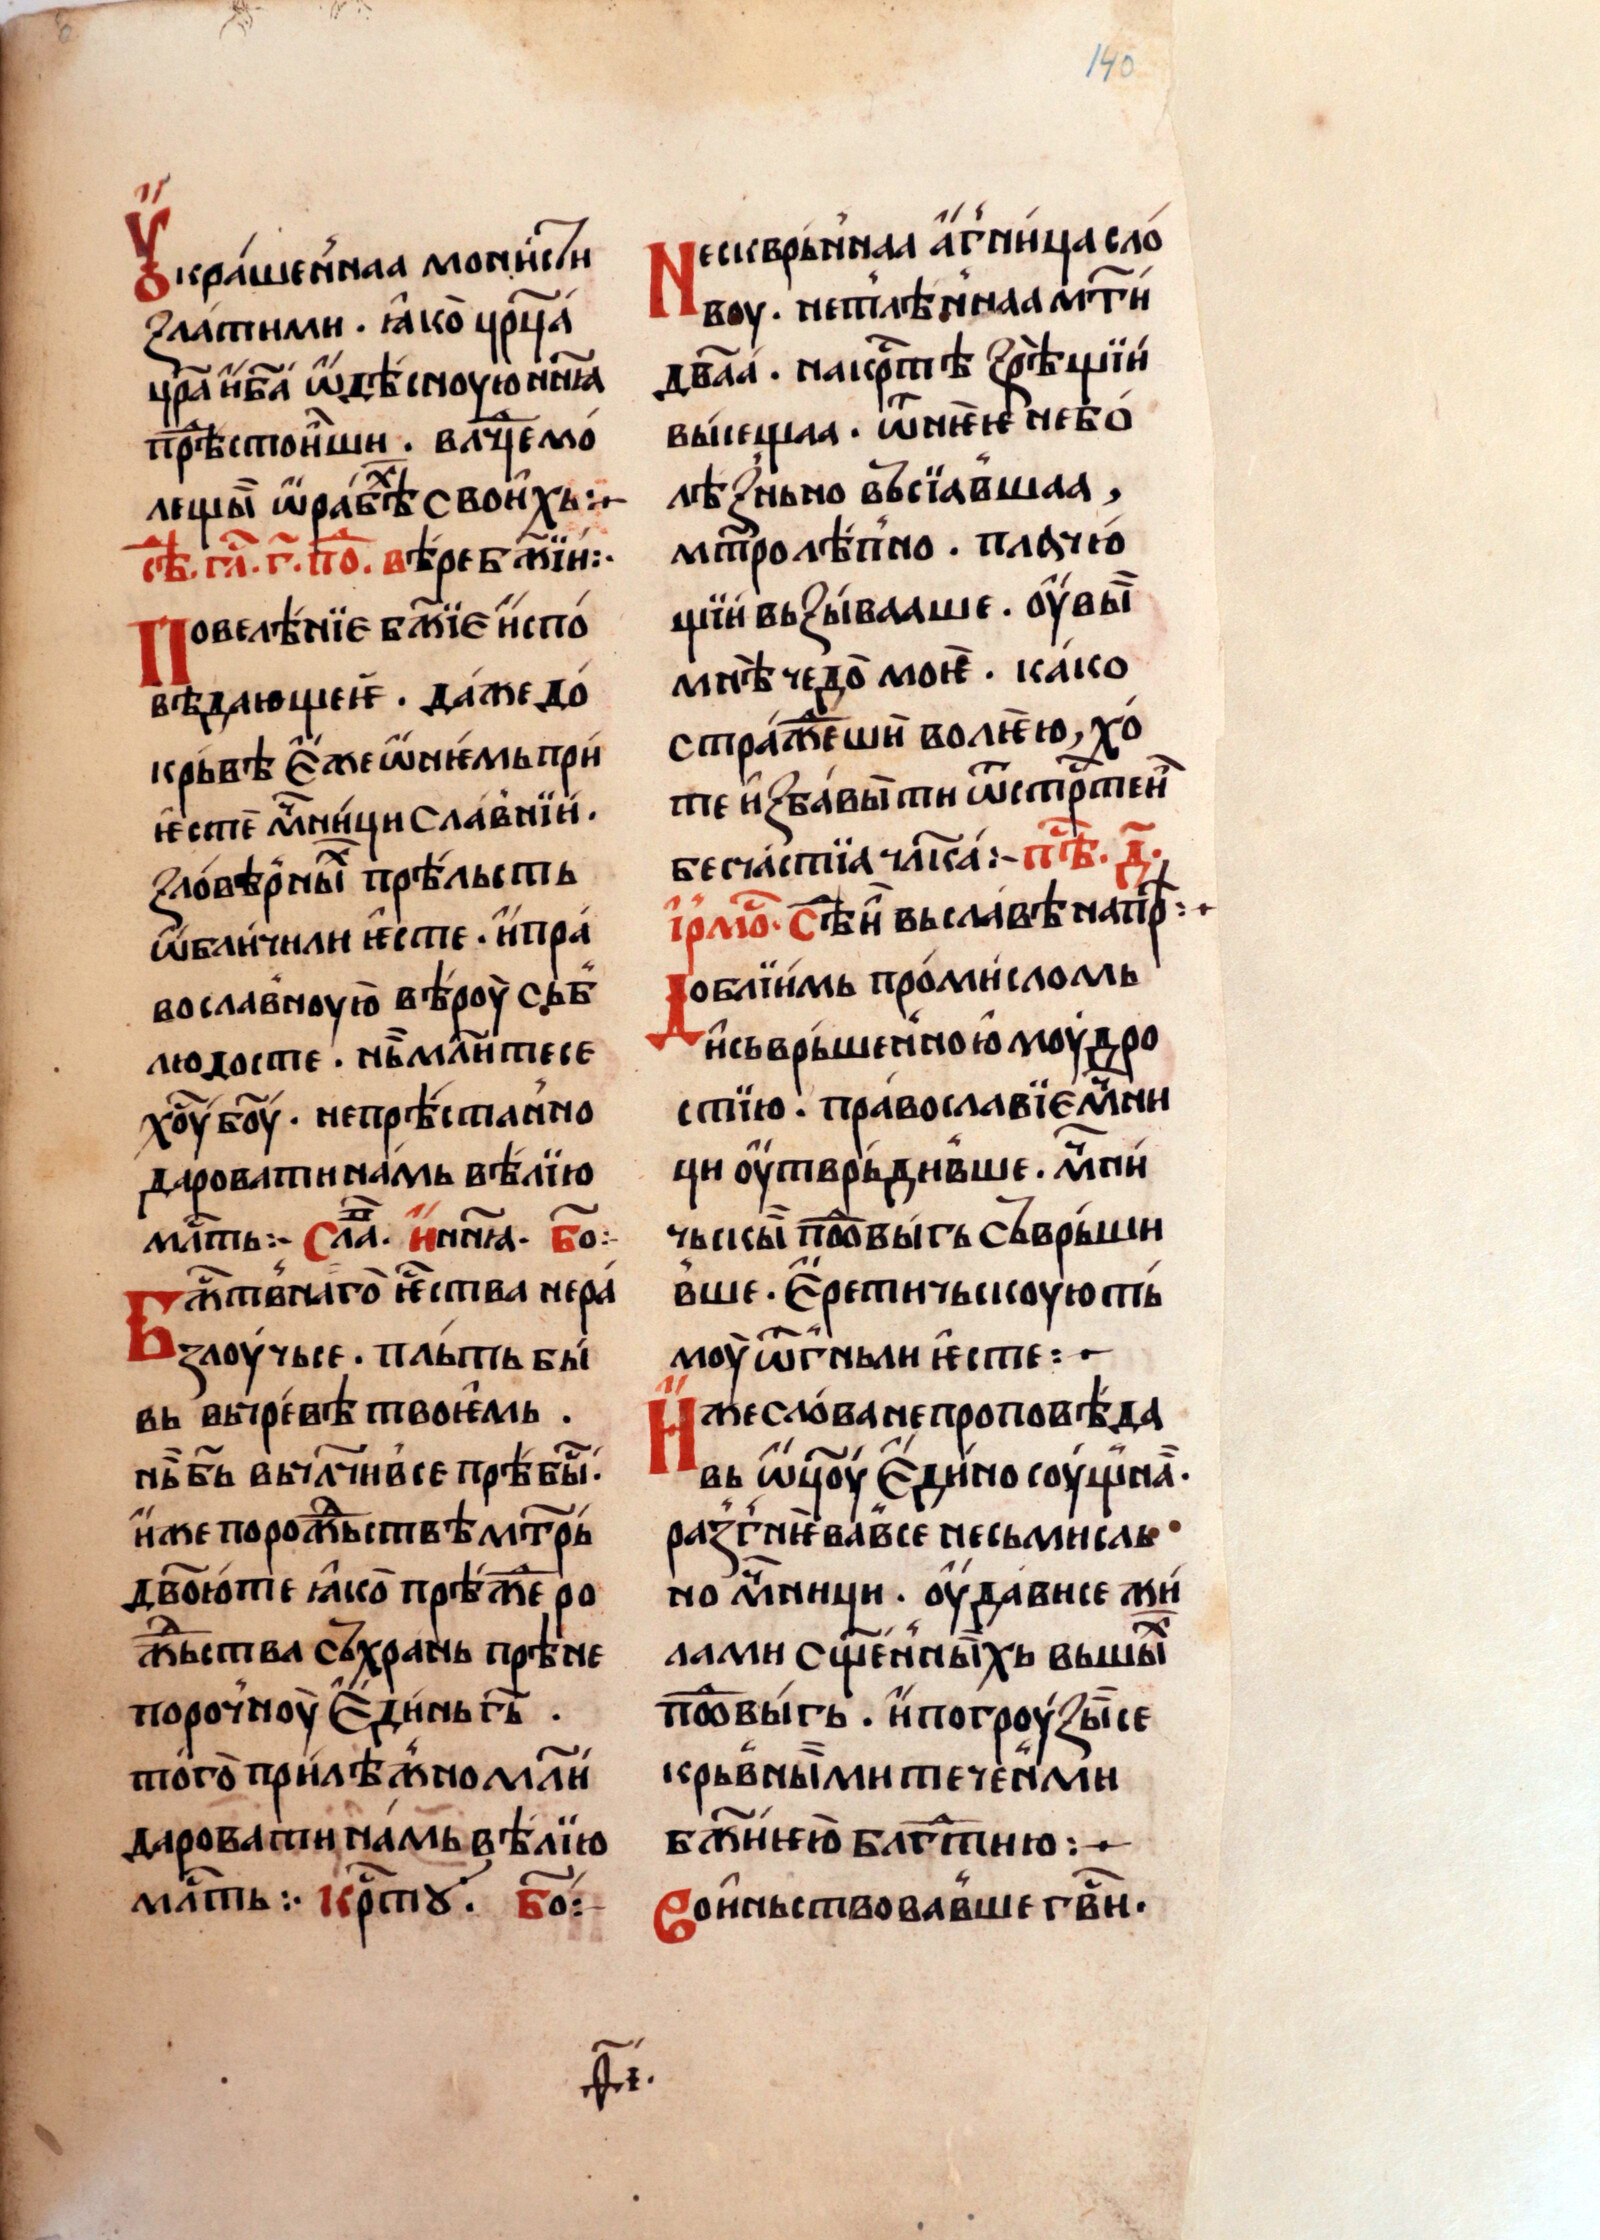 140
Ꙋкра́шеннаа мони́сты
ꙁла́тими . ꙗ҆ко̀ цр҃ца́
цр҃а и҆ б҃а́ ѡ҆дѣ́сноую нн҃ꙗ
прѣ҃стои́ши . влⷣчцемо́
лещы́ ѡ҆ рабѣ́хъ свои́хь :~
сѣⷣ. гла҃. г҃. поⷣ. вѣ́ре бж҃їи :·
Повелѣ́нїе бж҃їе и҆спо́
вѣдающеѥ . да́же до́
крьвѣ є҆же ѡ҆ нѥ́мь при́
ѥсте мⷱ҇ни́ци сла́внїи .
ꙁловѣ́рныⷯ прѣ́льсть
ѡ҆бличи́ли ѥ҆сте . и҆ пра́
вославноую̀ вѣ́роу̀ сьб
людосте . нь̀ мл҃и́тесе
хоу҃ боу҃ . непрѣ́станно
даровати на́мь вѣ́лїю
млⷭ҇ть :~ Сла҃. и҆ нн҃ꙗ. Бо҃ :~
Бжⷭ҇твнаго̀ ѥ҆ства не ра́
ꙁлоу́чьсе . пль́ть бы́
вь вьчре́вѣ твоѥ́мь .
нь̀ б҃ь вьчл҃чи́все прѣ́бы҃ .
и҆же по рожⷣьствѣ мт҃рь́
дв҃ою те ꙗ҆ко̀ прѣ́жⷣе ро
жⷣьства сь́хрань прѣ́не
поро́чноу̀ є҆ди́нь гь҃ .
то́го̀ при́лѣжно мл҃и́
даровати на́мь вѣ́лїю
млⷭ҇ть :· Крⷭ҇тꙋ . Бо҃ :~
Нескврьннаа а҆́гни́ца сло́
воу . нетлѣ́ннаа мт҃и́
дв҃аа́ . на крⷭ҇тѣ ꙁре́щїи
вы́сещаа . ѿ нѥѥ̀ небо́
лѣ́ꙁньно въсїа́вшаа ,
мт҃ролѣ́пно . плачю́
щїи вьꙁы́вааше . оу҆вы̀
мнѣ̀ чедо̀ моѥ̀ . ка́ко
стра́жⷣеши̏ волѥ́ю , хо́
те и҆ꙁба́вы́ти ѿ стрⷭ҇теи́
бесча́стїа чл҃ка́ :~ пѣⷭ҇. д҃.
і҆рмⷪ҇. сѣѝ вь сла́вѣ на прⷭ҇ :~
Доблїи́мь про́ми́сломь
и҆ сьврь́шенною̀ моу́дро
стїю . пра́вославїе мⷱ҇ни
ци оу҆тврь́ди́вше . мⷱ҇ни́
чьскы́ по́двы́гь сьврь́ши
вше . є҆ретичьскоую ть́
моу̀ ѿгньли ѥ҆сте :~
И҆же сло́ва не проповѣ́да
вь ѡ҆ц҃оу́ є҆ди́но соу́щна̀ .
раꙁгнѥ́вавсе несьмисль
но мⷱ҇ници . оу҆дависе жи́
лами сщ҃е́нны́хь вьшы́ⷯ
по́двы́гь . и҆ погроу́ꙁы́се
крьвны́ми тече́нми
бжⷭ҇и́ѥю̀ блгⷣтию :~
Вои́ньствовавше гв҃и .
д҃і.